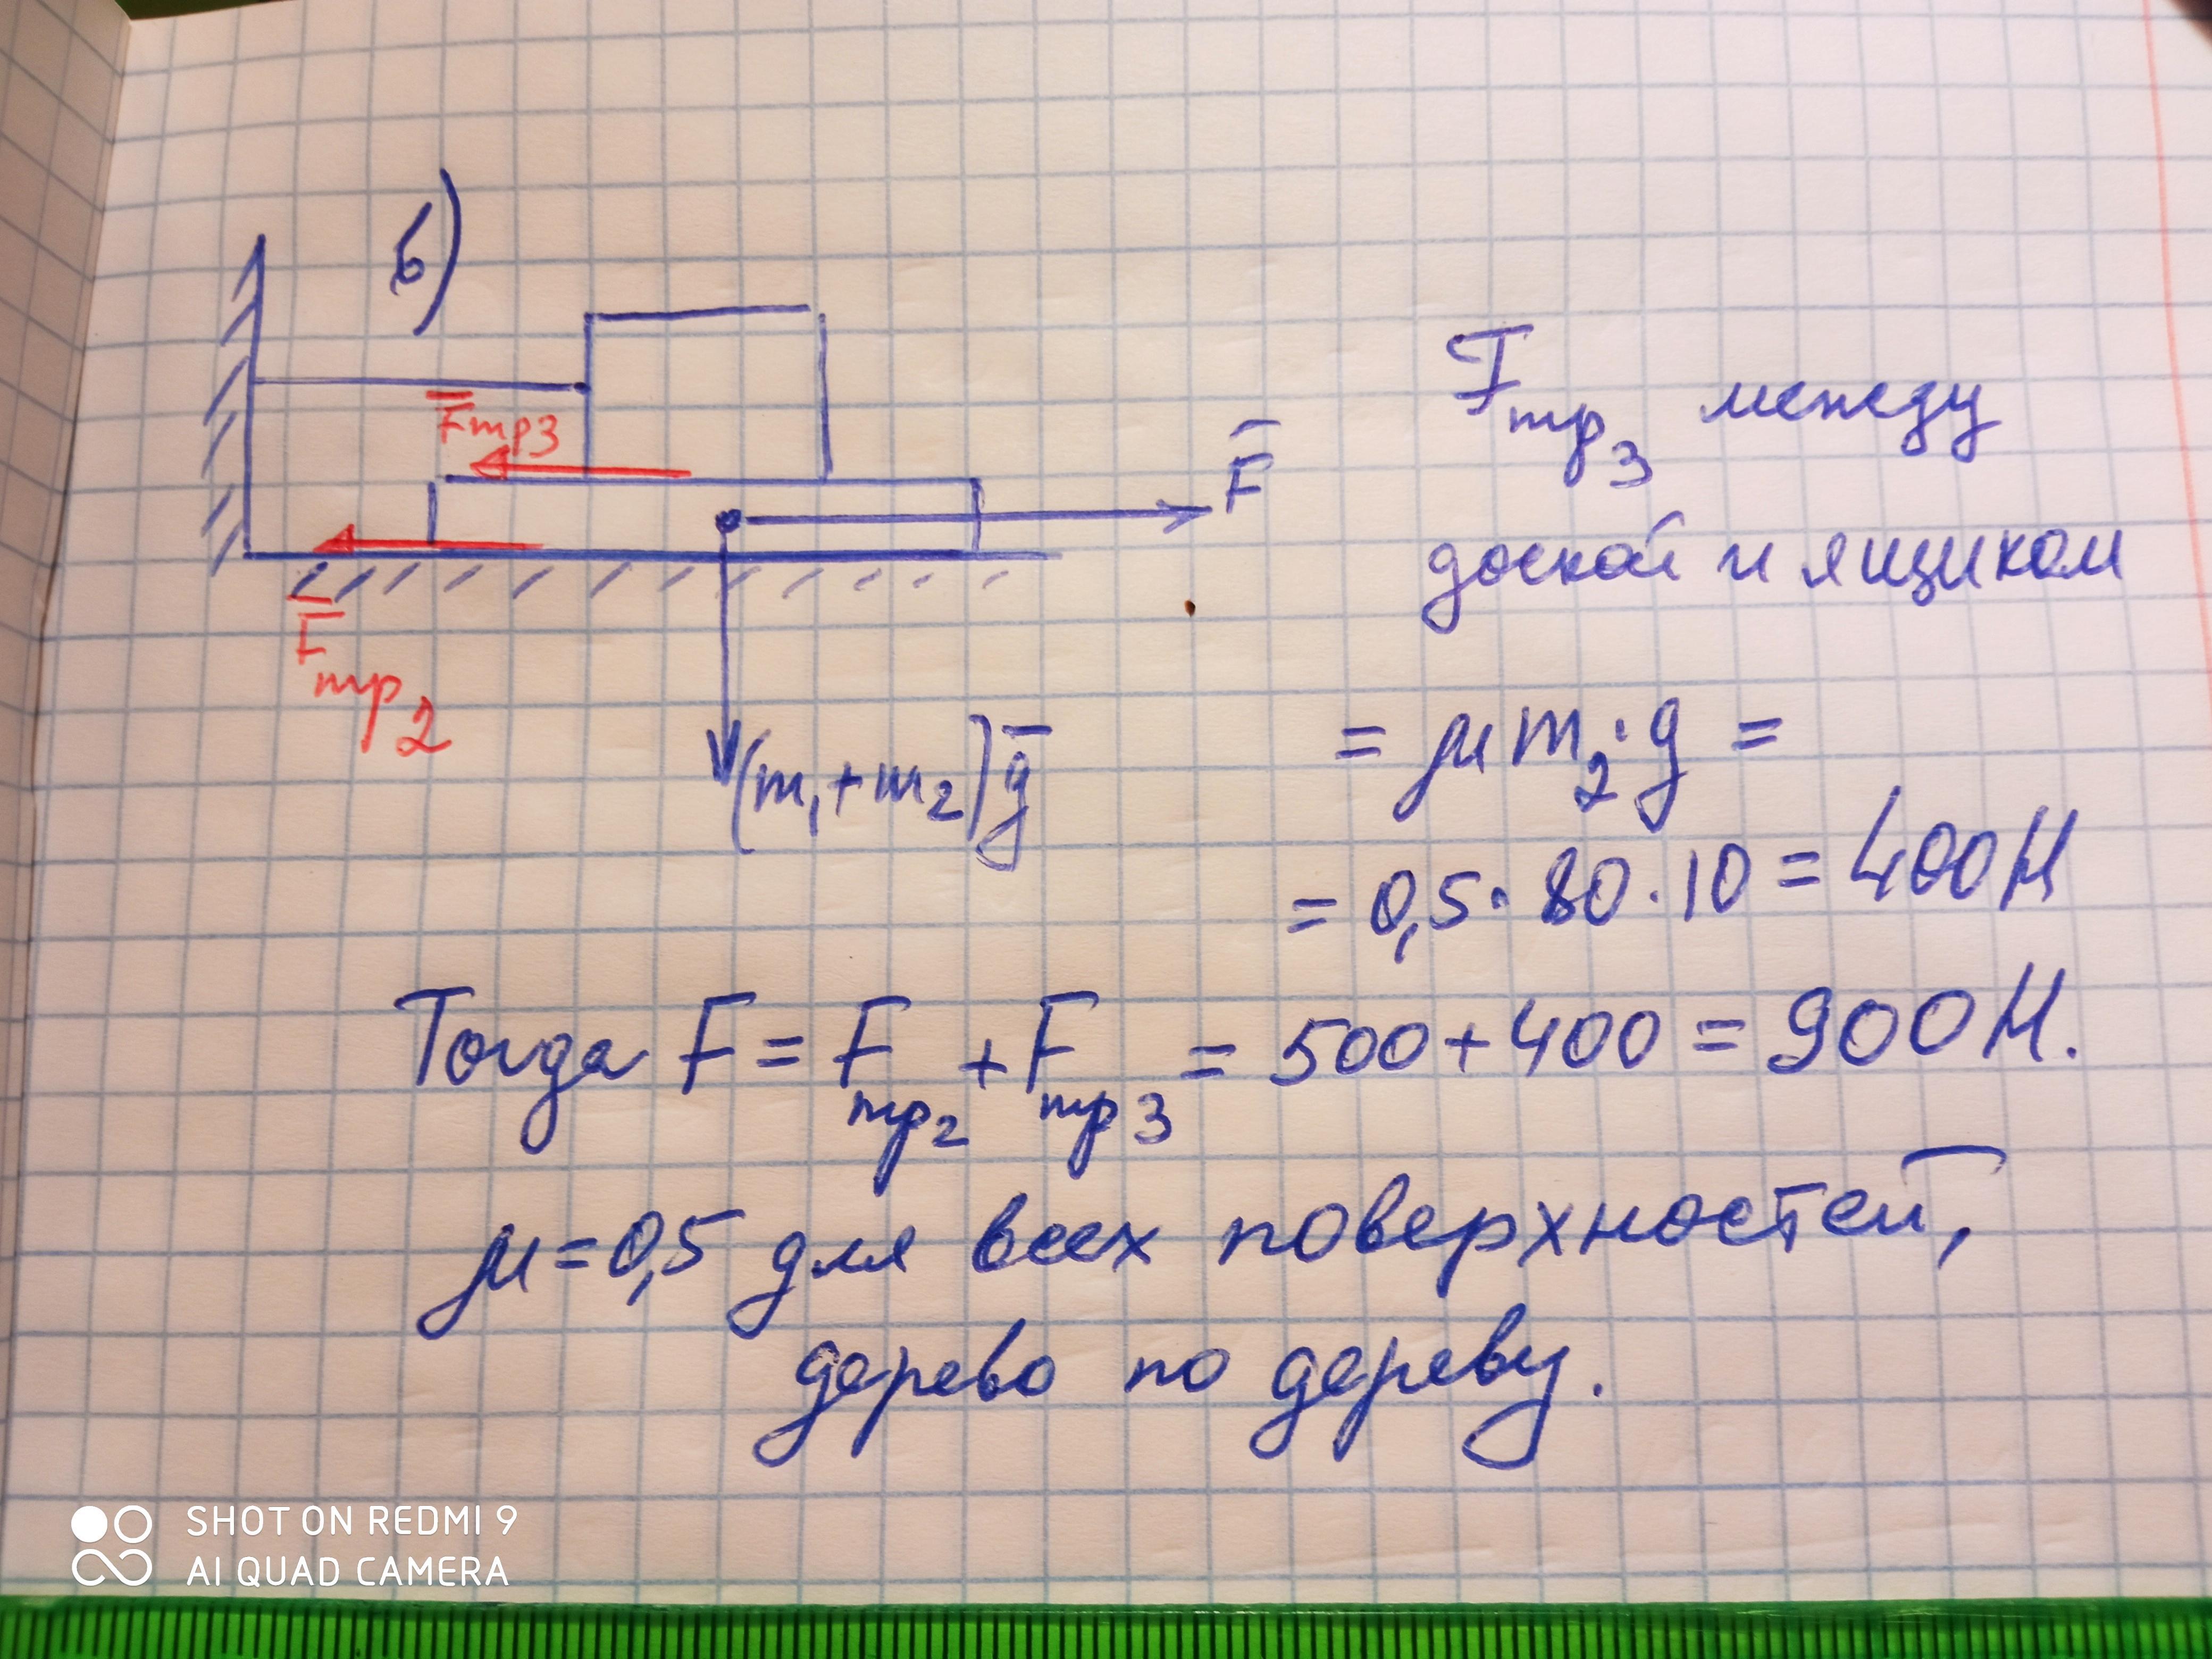 б)
F̅тр3
F̅
F̅тр2
(m₁+m₂)g̅
Fтр3 между
доской и ящиком
= μm₂·g =
= 0,5·80·10 = 400Н
Тогда F = Fтр2 + Fтр3 = 500+400 = 900Н.
μ=0,5 для всех поверхностей,
дерево по дереву.
SHOT ON REDMI 9
AI QUAD CAMERA